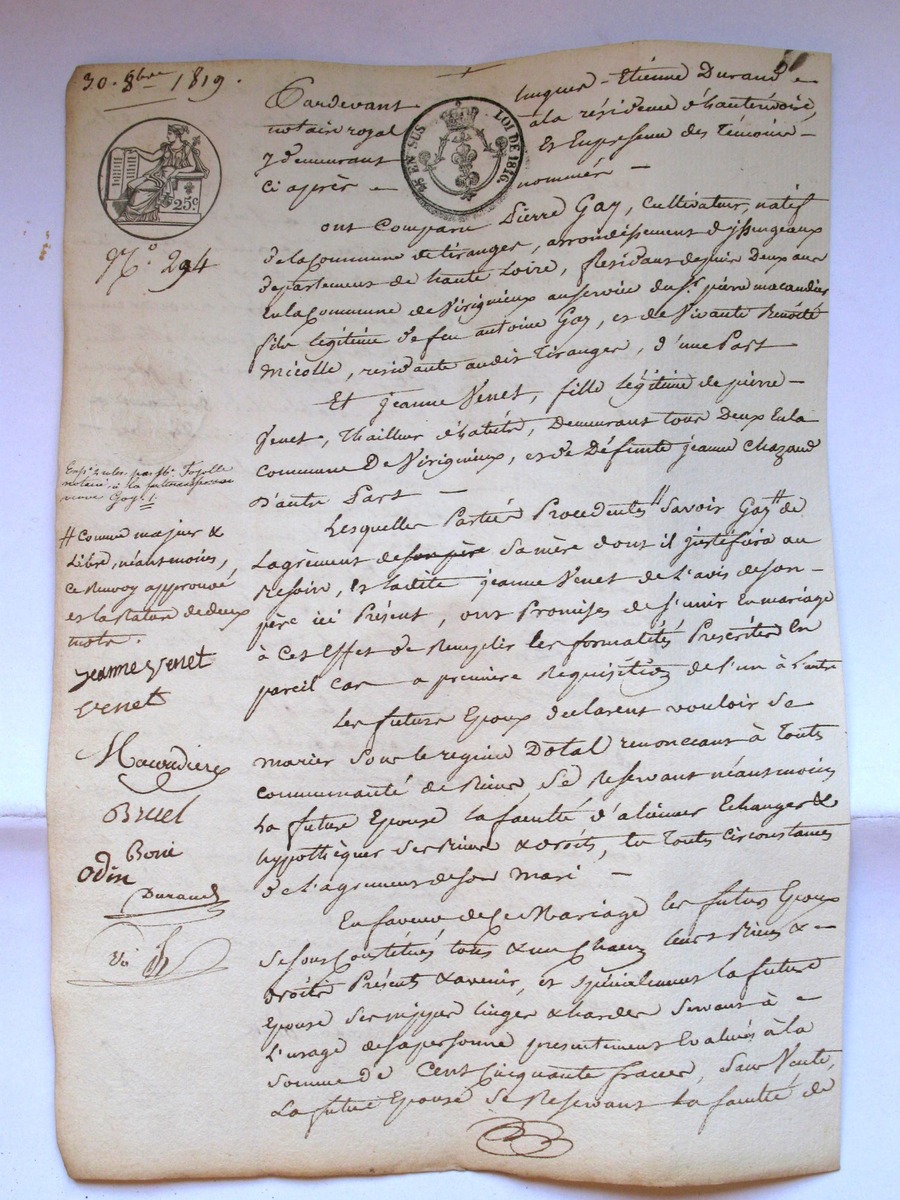 30. 8bre 1819.
Pardevant hugues-Etienne Durand
notaire royal à la résidence d'hauterivoire,
y demeurant Et En presence des Témoins
ci après nommés
45 EN SUS LOI DE 1816.
25c
N.° 294
ont Comparu Pierre Gay, Cultivateur, natif
de la Commune de tiranges, arrondissement d'issengeaux
departement de haute Loire, Residant depuis Deux ans
En la Commune de Virignieux au service du Sr. pierre macaudier
fils legitime de feu antoine Gay, et de Vivante Benoite
micolle, residante audit tiranges, d'une Part
Et jeanne Venet, fille légitime de pierre
Venet, thailleur d'habits, Demeurant tous Deux En la
Commune De Virignieux, et de Défunte jeanne Chazaud
D'autre Part
Lesquelles Parties Procedentes Savoir Gay # de
L'agrément de son père sa mère dont il justifira au
Besoin, Et ladite jeanne Venet de L'avis de son
père ici Présent, ont Promises de S'unir En mariage
à Cet Effet de Remplir les formalités Prescrites En
pareil Cas a première Requisition de l'un à L'autre
Les futurs Epoux déclarent vouloir se
marier Sous le regime Dotal renoncant à Toute
Communauté de Biens, Se Reservant néantmoins
La future Epouse la faculté d'aliéner Echanger &
hypothéquer ses Biens & droits, En Toutes circonstances
de L'agrément de son mari
En faveur de Ce Mariage les futurs Epoux
se sont Constitués tous & un Chacun leurs Biens &
droits Présents & avenir, et spécialement la future
Epouse ses nippes linges & hardes servant à
L'usage de sa personne présentement Evalués à la
somme de Cent Cinquante francs, Sans Vente,
La future Epouse se Reservant la faculté de
notaire, à la
veuve Gay
# comme majeur &
Libre, néantmoins,
Ce Renvoy approuvé
et la rature de deux
mots.
jeanne venet
venet
Macaudiere
Bruel
Boni
odin
Durand